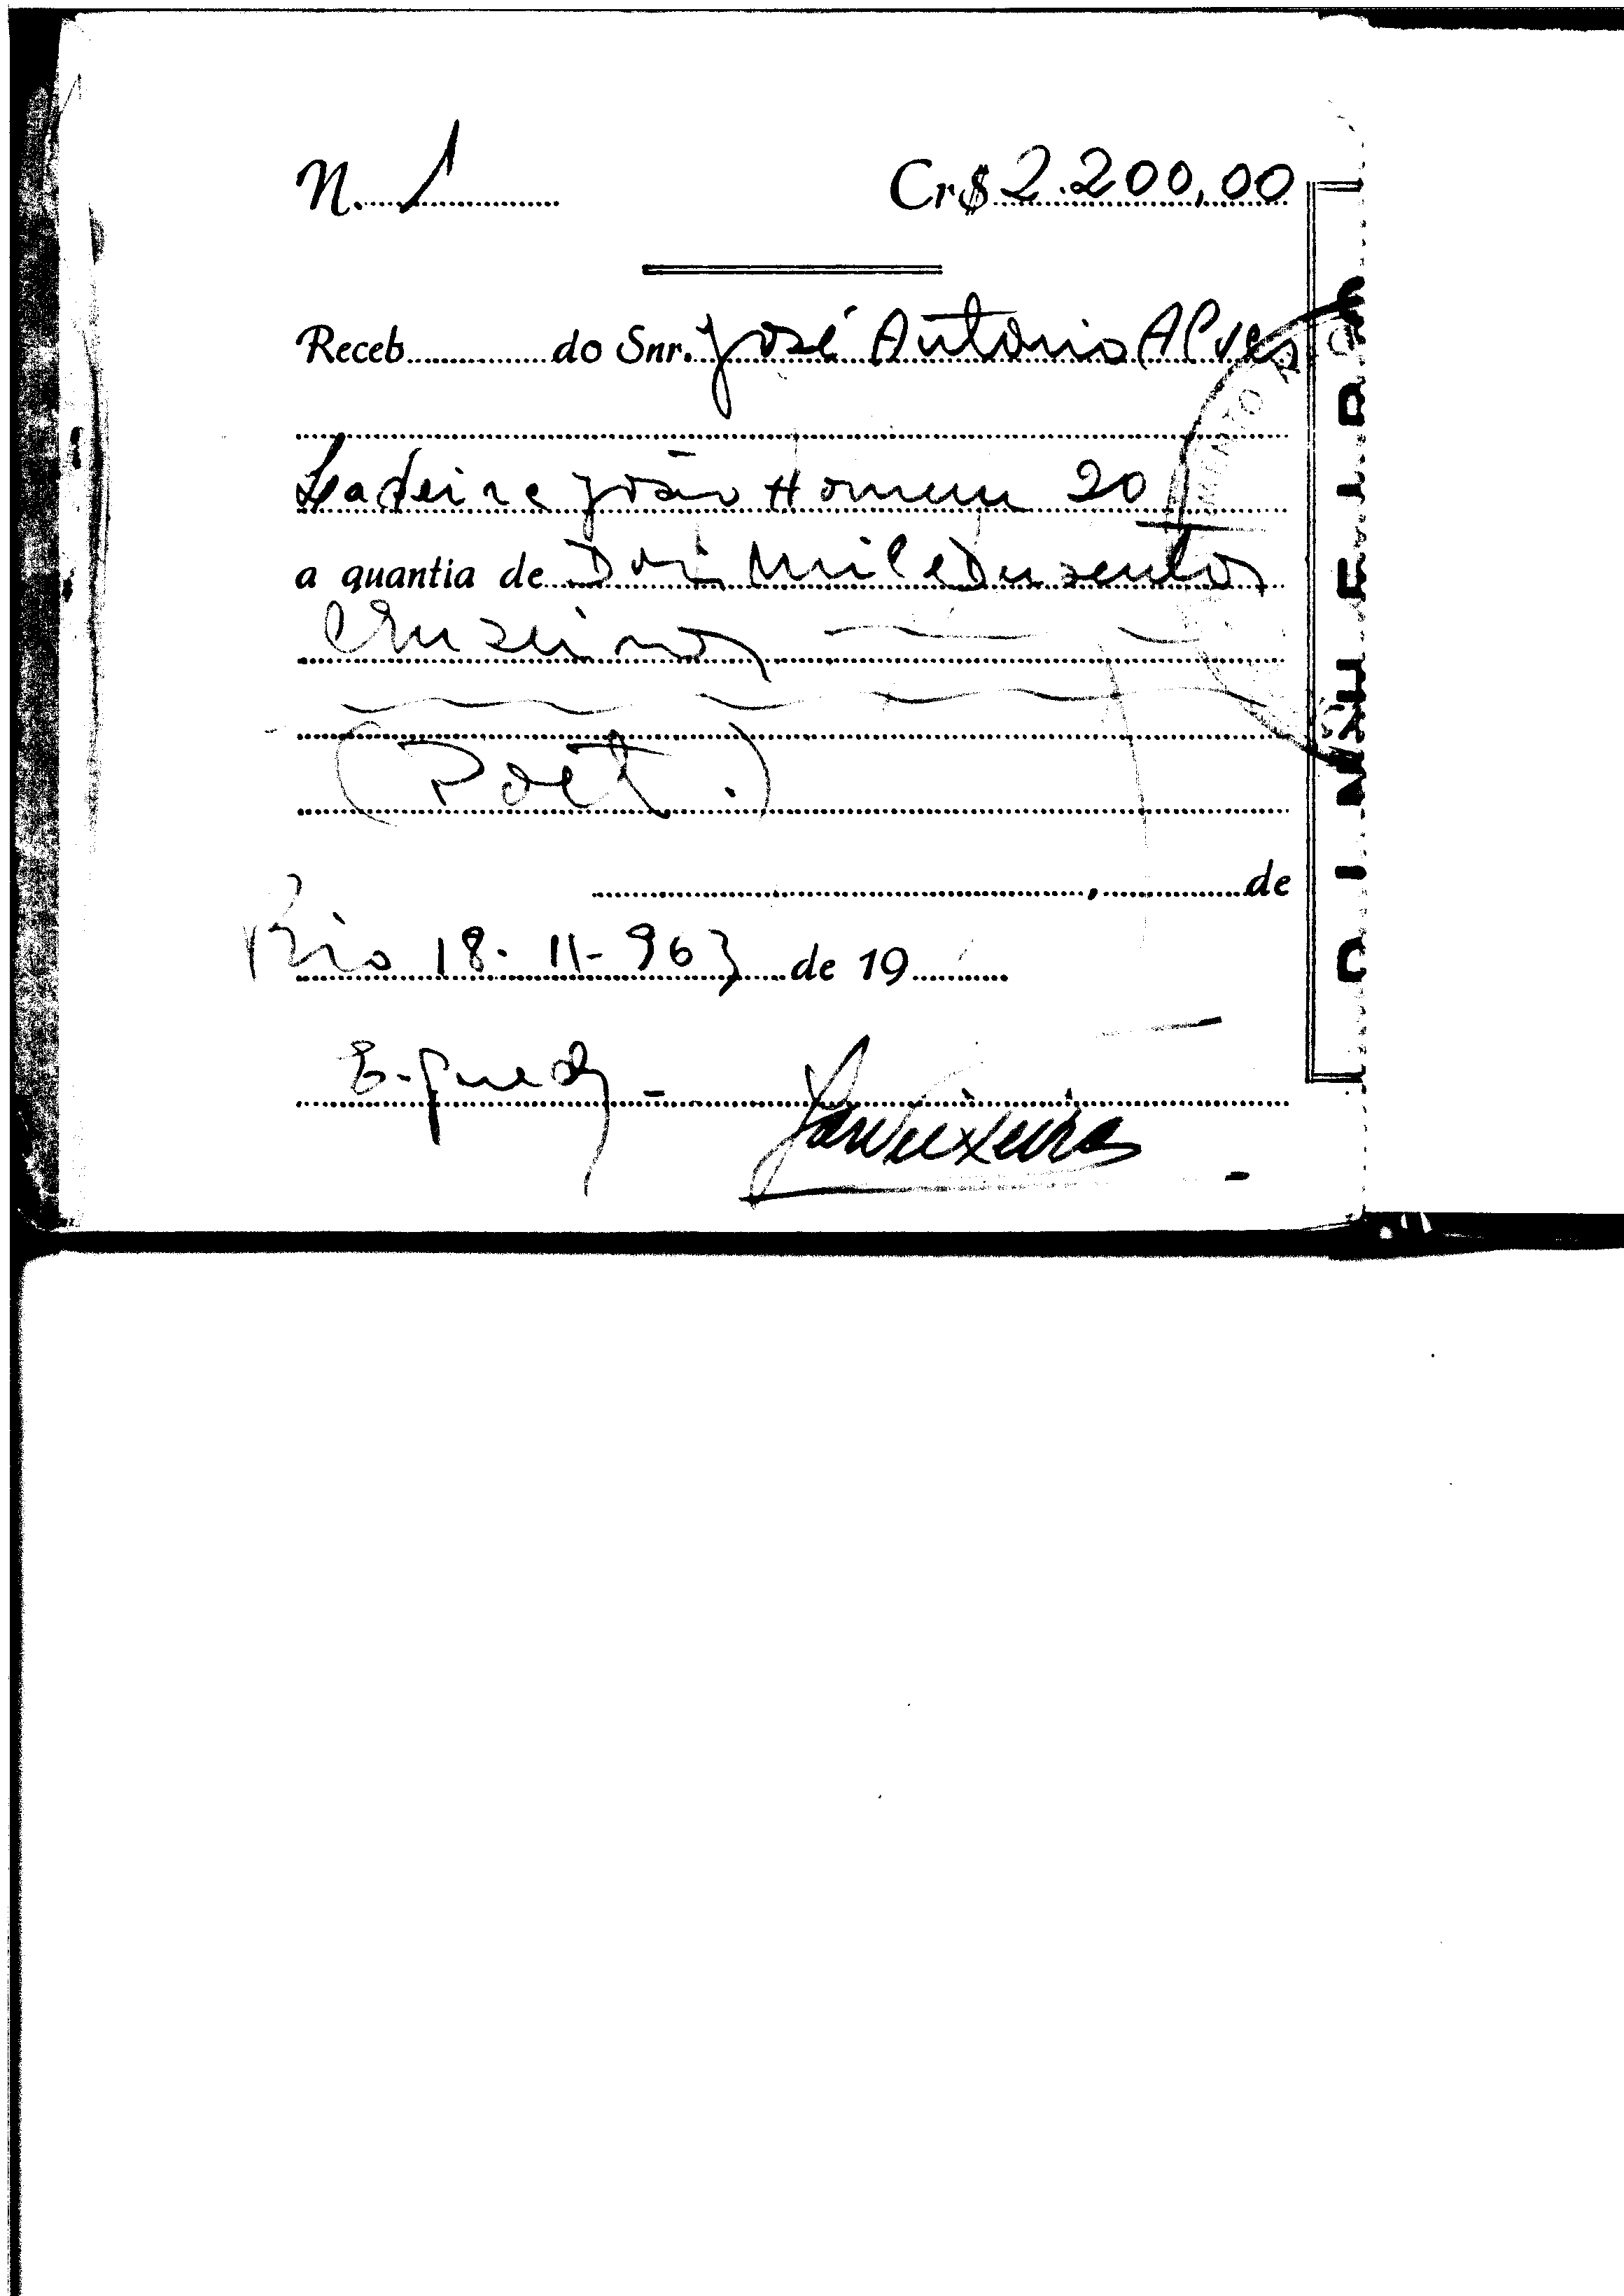 N. 1 Cr$ 2.200,00
Receb do Snr. José Antonio Alves
Ladeira João Homem 20
a quantia de Dois Mil e Duzentos
Cruzeiros
de
Rio 18-11-963 de 19
E. Guedes
Teixeira